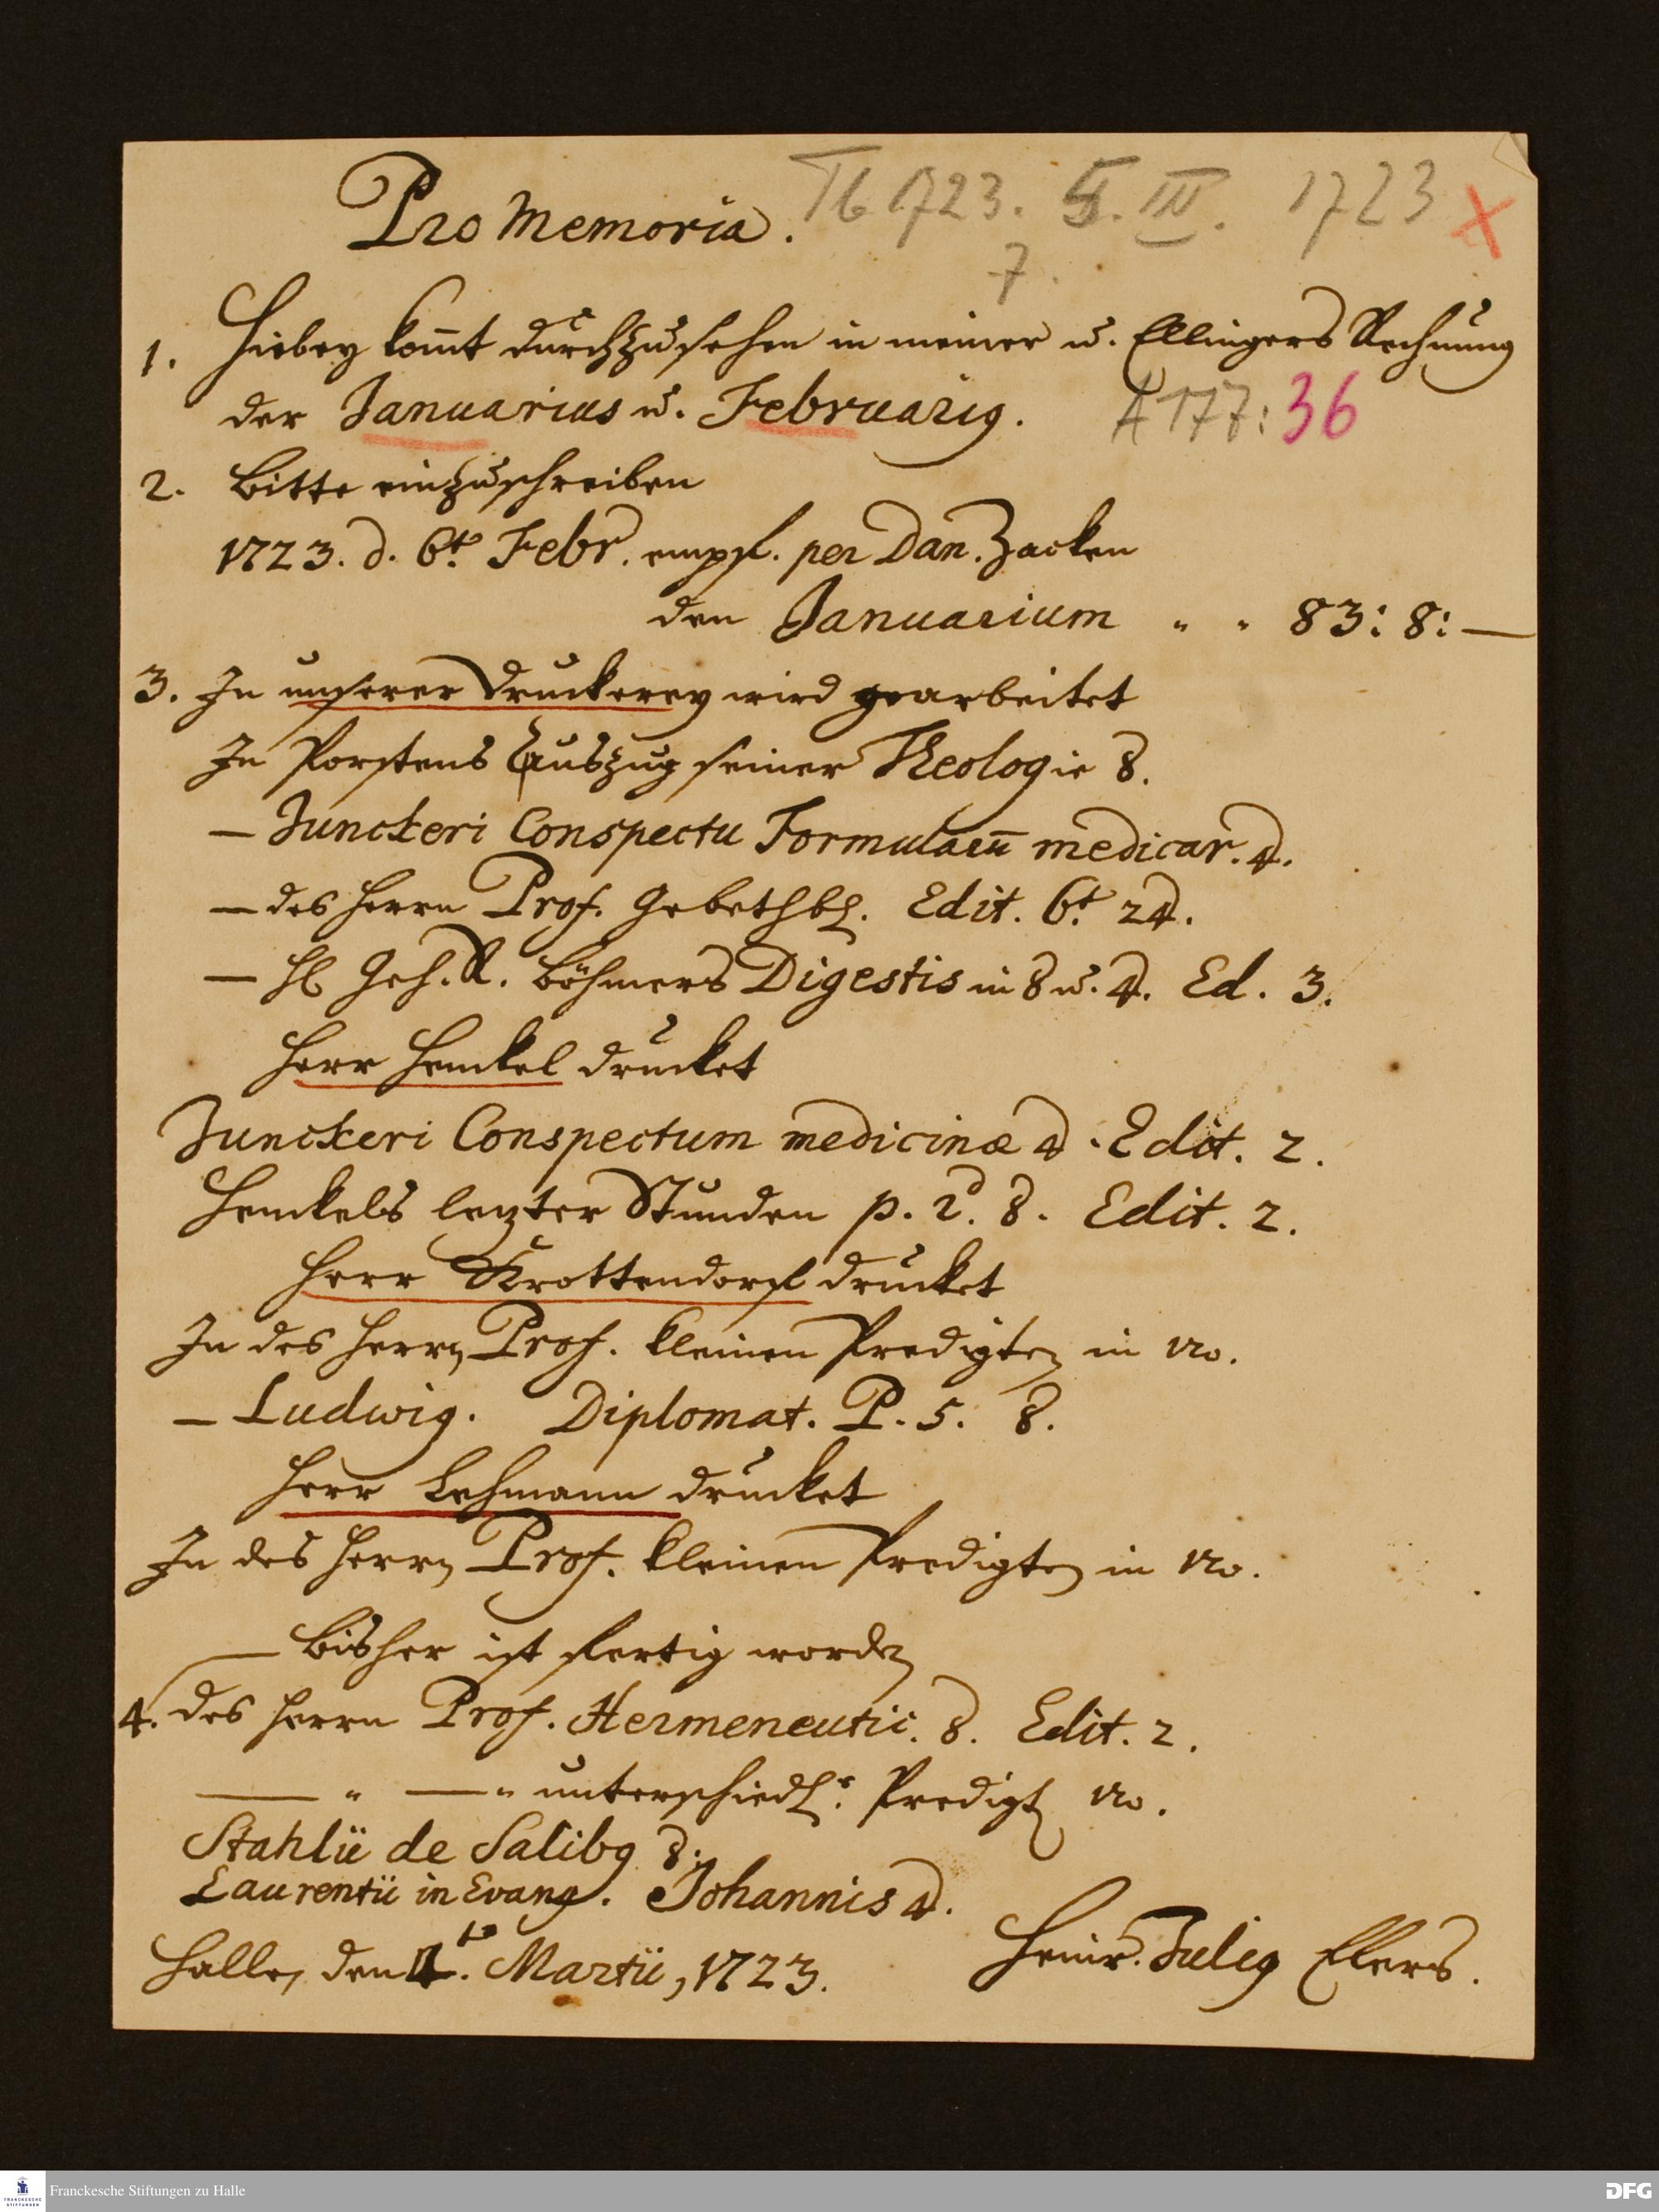 Pro Memoria.
Tb 1723. 5. III. 1723 X
7.
1. Hiebey komt durchzusehen in meiner u. Ellingers Rechnung
der Januarius u. Februarig.
A 177: 36
2. Bitte einzuschreiben
1723. d. 6t. Febr. empf. per Dan. Zacken
den Januarium " " 83: 8: —
3. In unserer Druckerey wird gearbeitet
In Porstens Auszug seiner Theologie 8.
— Junckeri Conspectu Formularū medicar. 4.
— des Herrn Prof. Gebethb. Edit. 6t. 24.
— H Geh. R. Böhmers Digestis in 8 u. 4. Ed. 3.
Herr Henckel drucket
Junckeri Conspectum medicinæ 4. Edit. 2.
Henckels letzter Stunden p. 2. 8. Edit. 2.
Herr Krottendorf drucket
In des Herrn Prof. kleinen Predigten in 12o.
— Ludwig. Diplomat. P. 5. 8.
Herr Lehmann drucket
In des Herrn Prof. kleinen Predigten in 12o.
— Bisher ist fertig worden
4. des Herrn Prof. Hermeneutic. 8. Edit. 2.
— " — " unterschiedl. Predigt 12o.
Stahlii de Salibg 8.
Laurentii in Evang. Johannis 4.
Halle, den 4. Martii, 1723.
Heinr. Julig Elers.
Franckesche Stiftungen zu Halle
FRANCKESCHE STIFTUNGEN
DFG